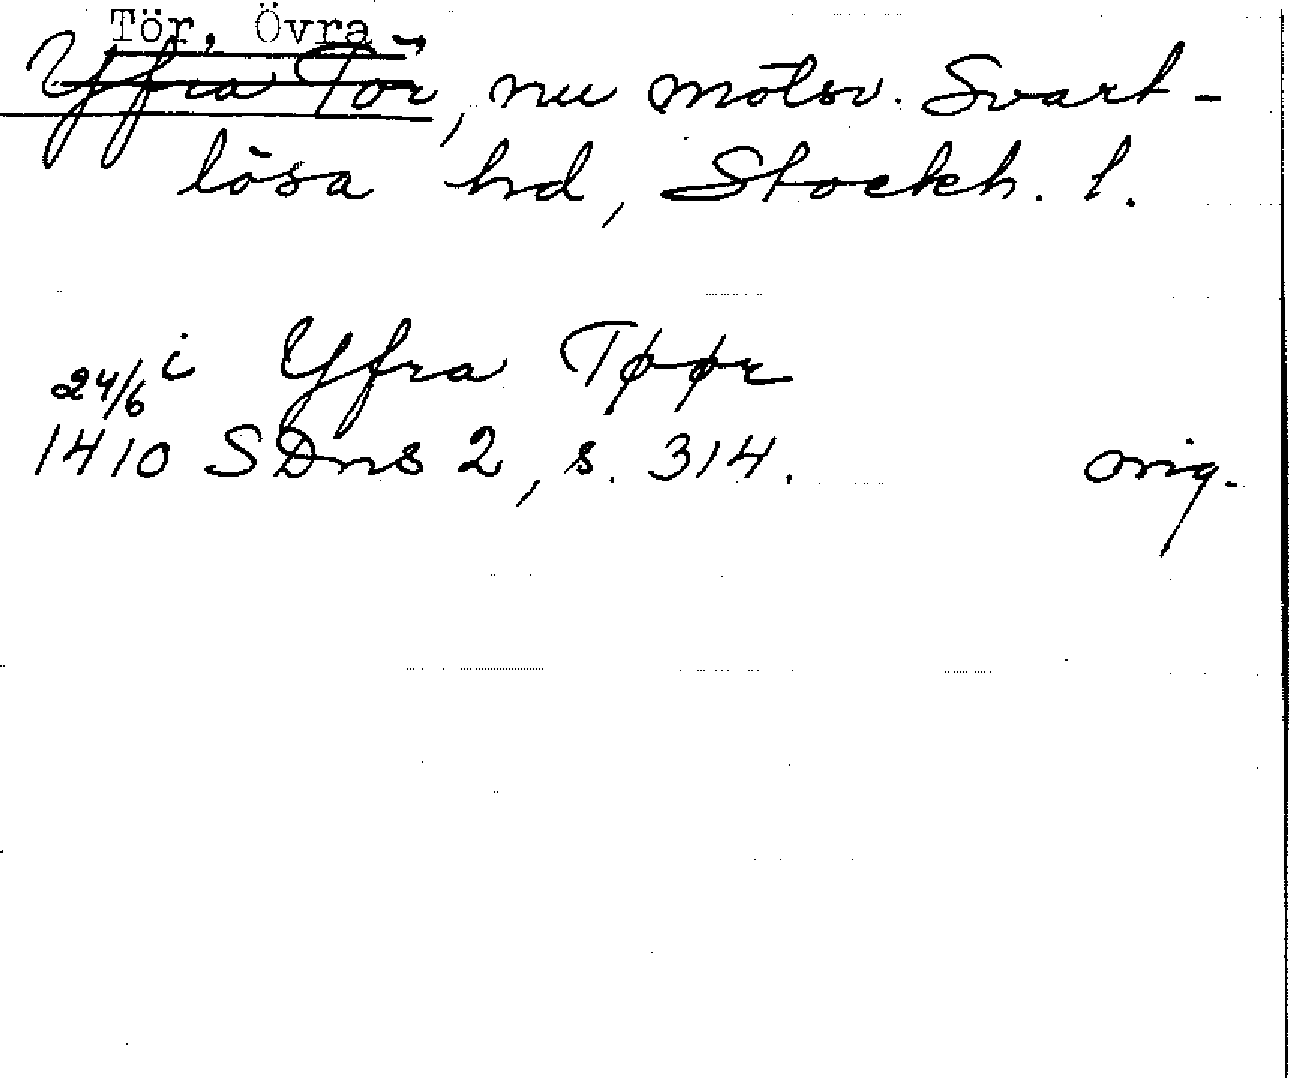 Tör, Övra
Yfra Tör, nu motsv. Svart-
lösa hd, Stockh. l.
i Yfra Tøør
24/6
1410 SDns 2, s. 314. orig.